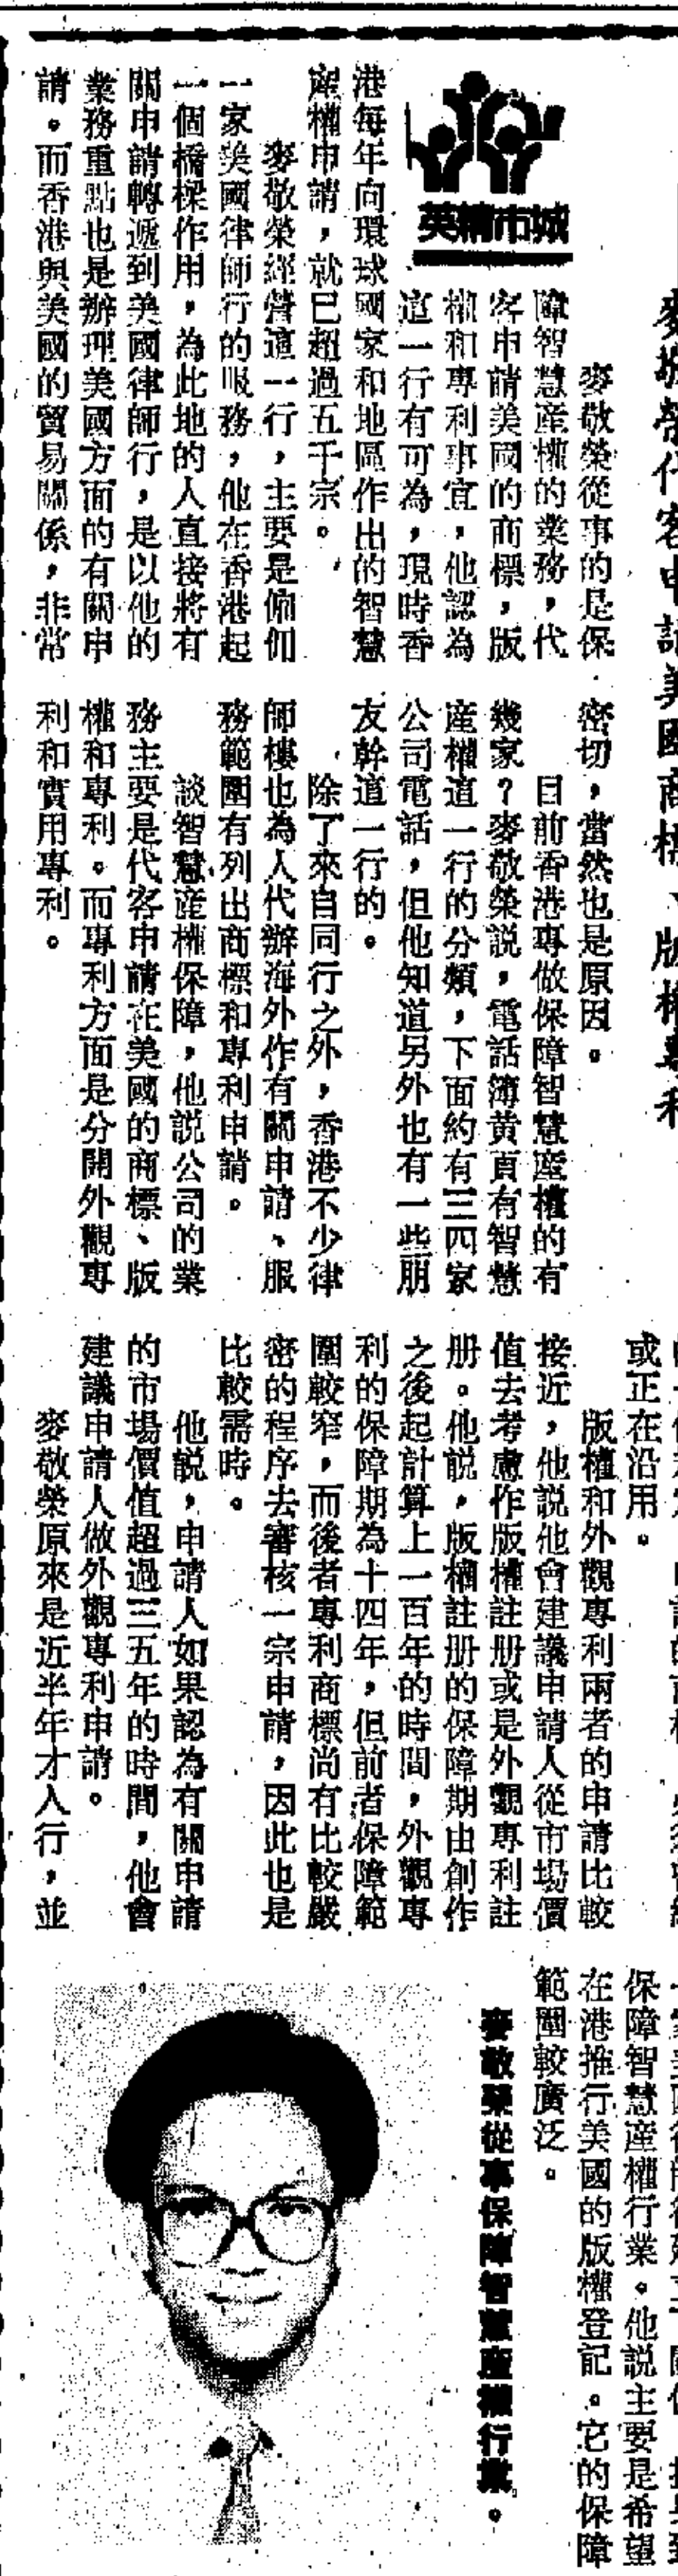 城市精英
麥敬榮代客申請美國商標、版權專利
麥敬榮從事的是保
障智慧產權的業務，代
客申請美國的商標，版
權和專利事宜，他認為
這一行有可為，現時香
港每年向環球國家和地區作出的智慧
產權申請，就已超過五千宗。
麥敬榮經營這一行，主要是備佣
一家美國律師行的服務，他在香港起
一個橋樑作用，為此地的人直接將有
關申請轉遞到美國律師行，是以他的
業務重點也是辦理美國方面的有關申
請。而香港與美國的貿易關係，非常
密切，當然也是原因。
目前香港專做保障智慧產權的有
幾家？麥敬榮說，電話簿黃頁有智慧
產權這一行的分類，下面約有三四家
公司電話，但他知道另外也有一些朋
友幹這一行的。
除了來自同行之外，香港不少律
師樓也為人代辦海外作有關申請、服
務範圍有列出商標和專利申請。
談智慧產權保障，他說公司的業
務主要是代客申請在美國的商標、版
權和專利。而專利方面是分開外觀專
利和實用專利。
或正在沿用。
版權和外觀專利兩者的申請比較
接近，他說他會建議申請人從市場價
值去考慮作版權註册或是外觀專利註
册。他說，版權註册的保障期由創作
之後起計算上一百年的時間，外觀專
利的保障期為十四年，但前者保障範
圍較窄，而後者專利商標尚有比較嚴
密的程序去審核一宗申請，因此也是
比較需時。
他說，申請人如果認為有關申請
的市場價值超過三五年的時間，他會
建議申請人做外觀專利申請。
麥敬榮原來是近半年才入行，並
保障智慧產權行業。他說主要是希望
在港推行美國的版權登記。它的保障
範圍較廣泛。
麥敬榮從事保障智慧產權行業。